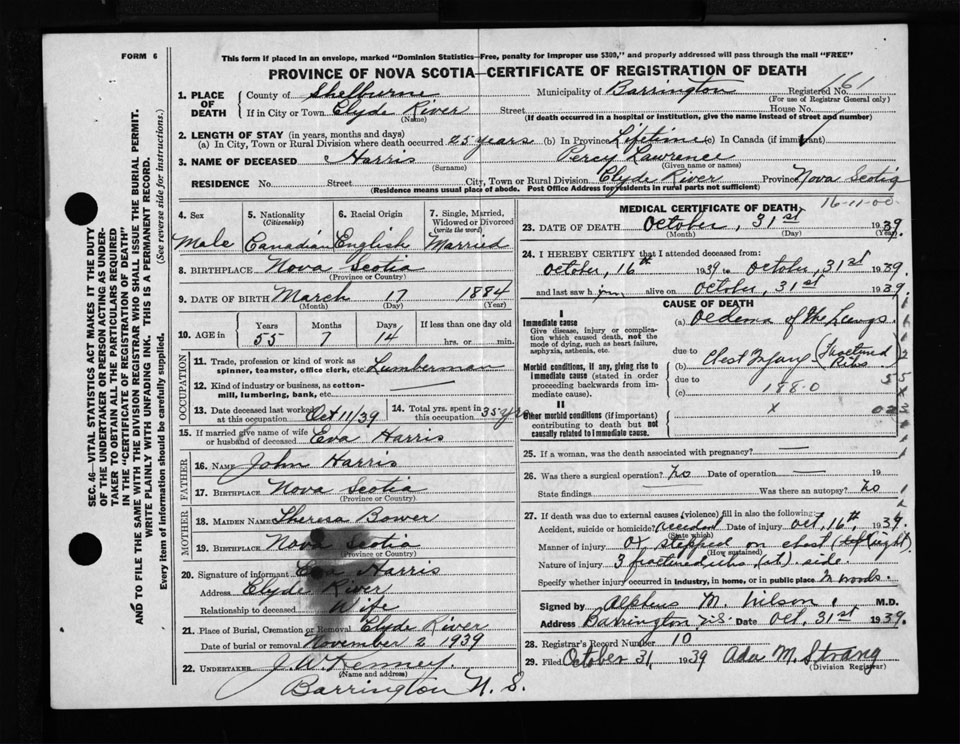 FORM 6
This form if placed in an envelope, marked "Dominion Statistics—Free, penalty for improper use $300," and properly addressed will pass through the mail "FREE"
PROVINCE OF NOVA SCOTIA—CERTIFICATE OF REGISTRATION OF DEATH
1. PLACE OF DEATH County of Shelburne Municipality of Barrington Registered No. 161
(For use of Registrar General only)
If in City or Town Clyde River Street House No.
(Name) (If death occurred in a hospital or institution, give the name instead of street and number)
2. LENGTH OF STAY (in years, months and days)
(a) In City, Town or Rural Division where death occurred 25 years (b) In Province Lifetime (c) In Canada (if immigrant)
3. NAME OF DECEASED Harris Percy Lawrence
(Surname) (Given name or names)
RESIDENCE No. Street City, Town or Rural Division Clyde River Province Nova Scotia
(Residence means usual place of abode. Post Office Address for residents in rural parts not sufficient)
4. Sex 5. Nationality (Citizenship) 6. Racial Origin 7. Single, Married, Widowed or Divorced (write the word)
Male Canadian English Married
8. BIRTHPLACE Nova Scotia
(Province or Country)
9. DATE OF BIRTH March 17 1884
(Month) (Day) (Year)
10. AGE in Years Months Days If less than one day old
55 7 14 hrs. or min.
OCCUPATION
11. Trade, profession or kind of work as spinner, teamster, office clerk, etc. Lumberman
12. Kind of industry or business, as cotton-mill, lumbering, bank, etc.
13. Date deceased last worked at this occupation Oct 11/39 14. Total yrs. spent in this occupation 35 yrs
15. If married give name of wife or husband of deceased Eva Harris
FATHER
16. NAME John Harris
17. BIRTHPLACE Nova Scotia
(Province or Country)
MOTHER
18. MAIDEN NAME Theresa Bower
19. BIRTHPLACE Nova Scotia
(Province or Country)
20. Signature of informant Eva Harris
Address Clyde River
Relationship to deceased Wife
21. Place of Burial, Cremation or Removal Clyde River
Date of burial or removal November 2 1939
22. UNDERTAKER J. W. Kenney.
(Name and address)
Barrington N. S.
MEDICAL CERTIFICATE OF DEATH 16-11-00
23. DATE OF DEATH October, 31st 1939
(Month) (Day) (Year)
24. I HEREBY CERTIFY that I attended deceased from:
October, 16th 1939 to October, 31st 1939.
and last saw him alive on October, 31st 1939.
CAUSE OF DEATH
I
Immediate cause (a) Oedema of the Lungs
Give disease, injury or complication which caused death, not the mode of dying, such as heart failure, asphyxia, asthenia, etc.
due to
(b) Chest Injury (Fractured Ribs
Morbid conditions, if any, giving rise to immediate cause (stated in order proceeding backwards from immediate cause).
due to
(c) 188-0
II
Other morbid conditions (if important) contributing to death but not causally related to immediate cause. x
25. If a woman, was the death associated with pregnancy?
26. Was there a surgical operation? No Date of operation 19
State findings Was there an autopsy? No
27. If death was due to external causes (violence) fill in also the following:
Accident, suicide or homicide? Accident Date of injury Oct, 16th, 1939.
(State which)
Manner of injury Ox stepped on chest (right)
(How sustained)
Nature of injury 3 fractured ribs (rt) side.
Specify whether injury occurred in industry, in home, or in public place In woods.
Signed by Alpheus M. Wilson, M.D.
Address Barrington N.S. Date Oct. 31st 1939.
28. Registrar's Record Number 10
29. Filed October 31 1939 Ada M. Strang
(Division Registrar)
SEC. 46—VITAL STATISTICS ACT MAKES IT THE DUTY
OF THE UNDERTAKER OR PERSON ACTING AS UNDER-
TAKER TO OBTAIN ALL THE PARTICULARS REQUIRED
IN THE "CERTIFICATE OF REGISTRATION OF DEATH"
AND TO FILE THE SAME WITH THE DIVISION REGISTRAR WHO SHALL ISSUE THE BURIAL PERMIT.
WRITE PLAINLY WITH UNFADING INK. THIS IS A PERMANENT RECORD.
Every item of information should be carefully supplied. (See reverse side for instructions.)